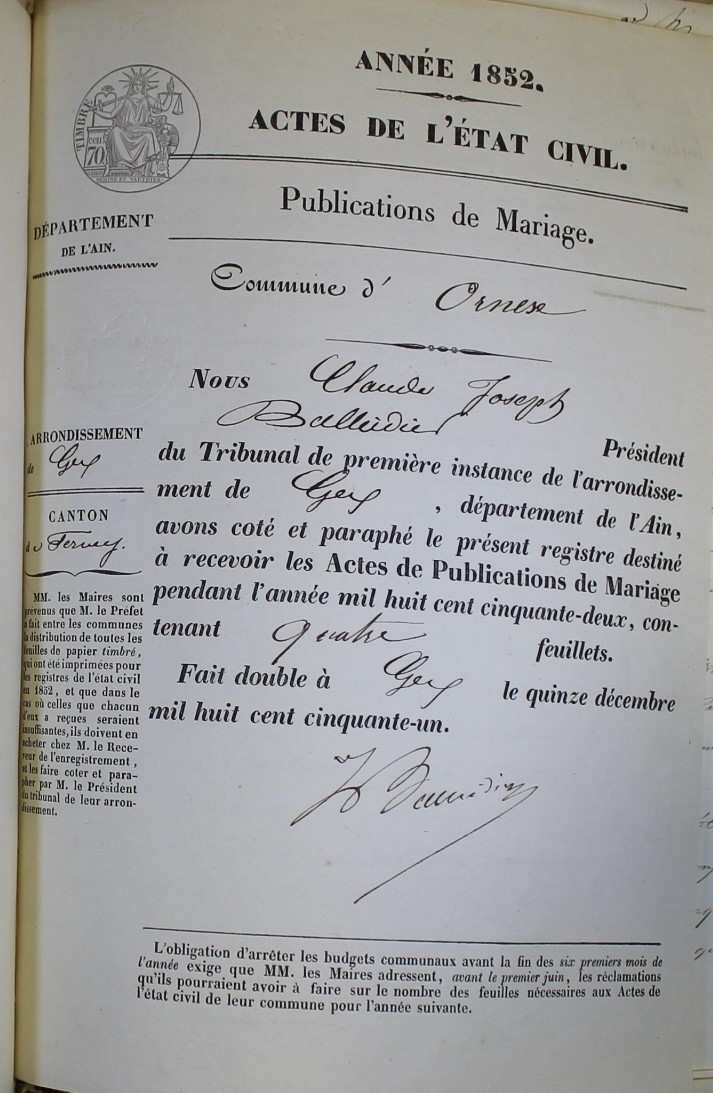 ANNÉE 1852.
ACTES DE L'ÉTAT CIVIL.
Publications de Mariage.
TIMBRE
cen
70
DÉPARTEMENT
DE L'AIN.
Commune d' Ornex
Nous Claude Joseph
Balleidier Président
du Tribunal de première instance de l'arrondisse-
ment de Gex, département de l'Ain,
avons coté et paraphé le présent registre destiné
à recevoir les Actes de Publications de Mariage
pendant l'année mil huit cent cinquante-deux, con-
tenant quatre feuillets.
Fait double à Gex le quinze décembre
mil huit cent cinquante-un.
ARRONDISSEMENT
de Gex
CANTON
de Ferney.
MM. les Maires sont
prévenus que M. le Préfet
a fait entre les communes
la distribution de toutes les
feuilles de papier timbré,
qui ont été imprimées pour
les registres de l'état civil
en 1852, et que dans le
cas où celles que chacun
d'eux a reçues seraient
insuffisantes, ils doivent en
acheter chez M. le Rece-
veur de l'enregistrement,
et les faire coter et para-
pher par M. le Président
du tribunal de leur arron-
dissement.
L'obligation d'arrêter les budgets communaux avant la fin des six premiers mois de
l'année exige que MM. les Maires adressent, avant le premier juin, les réclamations
qu'ils pourraient avoir à faire sur le nombre des feuilles nécessaires aux Actes de
l'état civil de leur commune pour l'année suivante.